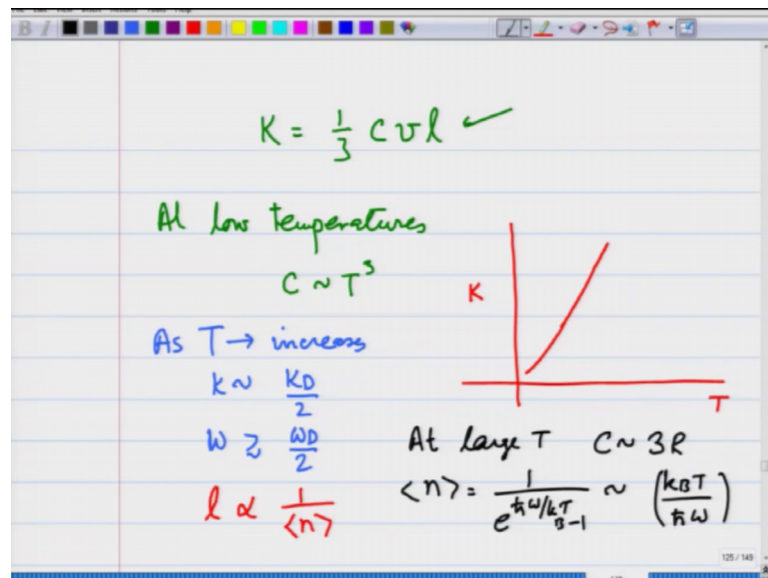 K = 1/3 C v l ✓
At low temperatures
C ~ T³
K
T
As T → increases
k ~ k_D/2
ω ≳ ω_D/2
l ∝ 1/<n>
At large T C ~ 3R
<n> = 1/(e^{ħω/k_BT} -1) ~ (k_BT/ħω)
125 / 149